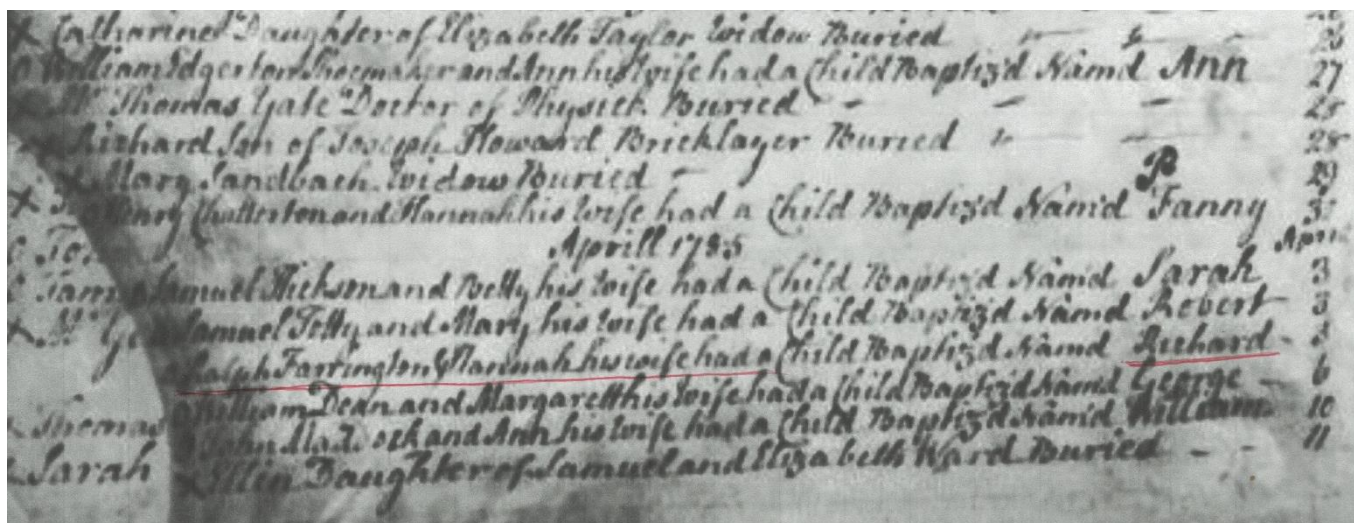 X Catharine Daughter of Elizabeth Taylor Widow Buried 26
William Edgerton Shoemaker and Ann his wife had a Child Baptiz'd Nam'd Ann 27
Mr Thomas Yate Doctor of Physick Buried 25
Richard Son of Joseph Howard Bricklayer Buried 28
Mary Sandbach Widow Buried 29
P
X Henry Chatterton and Hannah his wife had a Child Baptiz'd Nam'd Fanny 31
Aprill 1735 Aprill
Samuel Hickson and Betty his wife had a Child Baptiz'd Nam'd Sarah 3
X Samuel Tetty and Mary his wife had a Child Baptiz'd Nam'd Robert 3
Ralph Farrington & Hannah his wife had a Child Baptiz'd Nam'd Richard
William Dean and Margarett his wife had a Child Baptiz'd Nam'd George 6
Thomas John and Ann his wife had a Child Baptiz'd Nam'd William 10
Sarah X Ellin Daughter of Samuel and Elizabeth Ward Buried 11